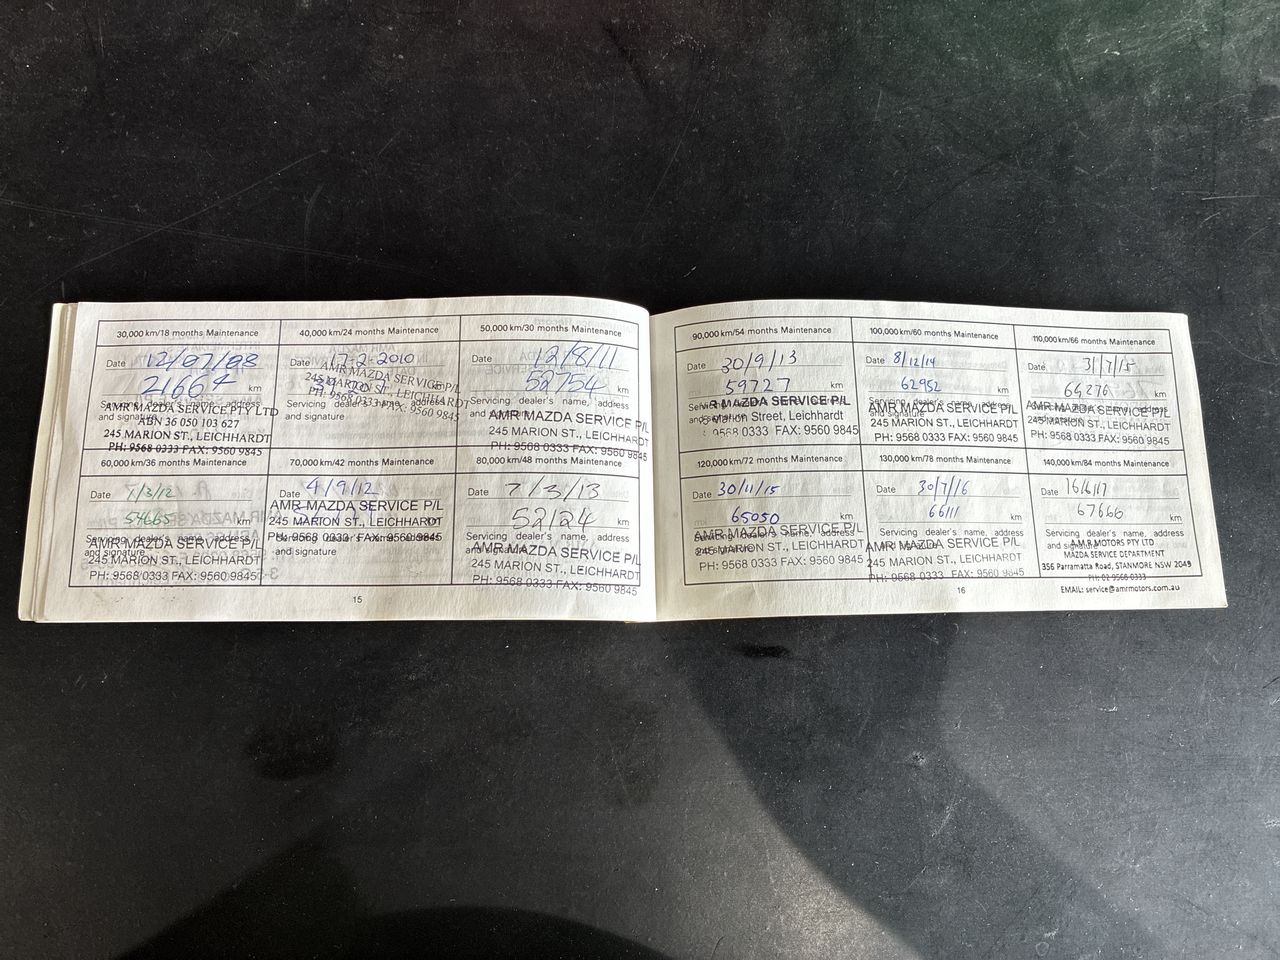 30,000 km/18 months Maintenance
Date 12/07/08
21664 km
Servicing dealer's name, address
and signature
AMR MAZDA SERVICE PTY LTD
ABN 36 050 103 627
245 MARION ST., LEICHHARDT
PH: 9568 0333 FAX: 9560 9845
40,000 km/24 months Maintenance
Date 17-2-2010
km
Servicing dealer's name, address
and signature
AMR MAZDA SERVICE P/L
245 MARION ST., LEICHHARDT
PH: 9568 0333 FAX: 9560 9845
50,000 km/30 months Maintenance
Date 12/8/11
52754 km
Servicing dealer's name, address
and signature
AMR MAZDA SERVICE P/L
245 MARION ST., LEICHHARDT
PH: 9568 0333 FAX: 9560 9845
60,000 km/36 months Maintenance
Date 1/3/12
54665 km
Servicing dealer's name, address
and signature
AMR MAZDA SERVICE P/L
245 MARION ST., LEICHHARDT
PH: 9568 0333 FAX: 9560 9845
70,000 km/42 months Maintenance
Date 4/9/12
km
Servicing dealer's name, address
and signature
AMR MAZDA SERVICE P/L
245 MARION ST., LEICHHARDT
PH: 9568 0333 FAX: 9560 9845
80,000 km/48 months Maintenance
Date 7/3/13
52124 km
Servicing dealer's name, address
and signature
AMR MAZDA SERVICE P/L
245 MARION ST., LEICHHARDT
PH: 9568 0333 FAX: 9560 9845
15
90,000 km/54 months Maintenance
Date 30/9/13
59727 km
Servicing dealer's name, address
and signature
MAZDA SERVICE P/L
Marion Street, Leichhardt
9568 0333 FAX: 9560 9845
100,000 km/60 months Maintenance
Date 8/12/14
62952 km
Servicing dealer's name, address
and signature
AMR MAZDA SERVICE P/L
245 MARION ST., LEICHHARDT
PH: 9568 0333 FAX: 9560 9845
110,000 km/66 months Maintenance
Date 31/7/15
64276 km
Servicing dealer's name, address
and signature
AMR MAZDA SERVICE P/L
245 MARION ST., LEICHHARDT
PH: 9568 0333 FAX: 9560 9845
120,000 km/72 months Maintenance
Date 30/11/15
65050 km
Servicing dealer's name, address
and signature
AMR MAZDA SERVICE P/L
245 MARION ST., LEICHHARDT
PH: 9568 0333 FAX: 9560 9845
130,000 km/78 months Maintenance
Date 30/7/16
66111 km
Servicing dealer's name, address
and signature
AMR MAZDA SERVICE P/L
245 MARION ST., LEICHHARDT
PH: 9568 0333 FAX: 9560 9845
140,000 km/84 months Maintenance
Date 16/6/17
67666 km
Servicing dealer's name, address
and signature
A.M.R MOTORS PTY LTD
MAZDA SERVICE DEPARTMENT
356 Parramatta Road, STANMORE NSW 2049
PH: 02 9568 0333
EMAIL: service@amrmotors.com.au
16